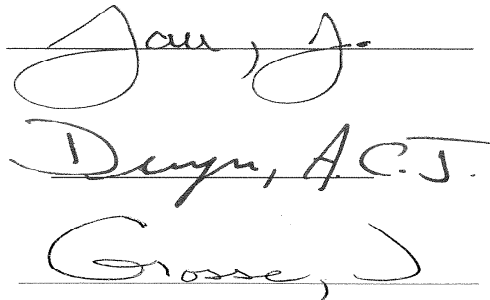 Jau, J.
Dwyn, A.C.J.
Grosse, J